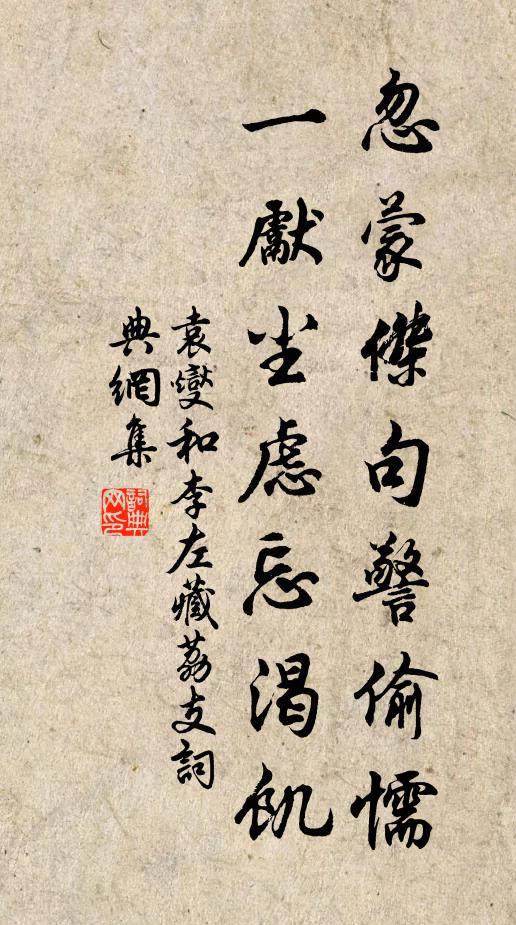 忽蒙傑句警偷懦
一獻尘慮忘渴飢
袁燮和李左藏荔支詞
典網集
詞典网印